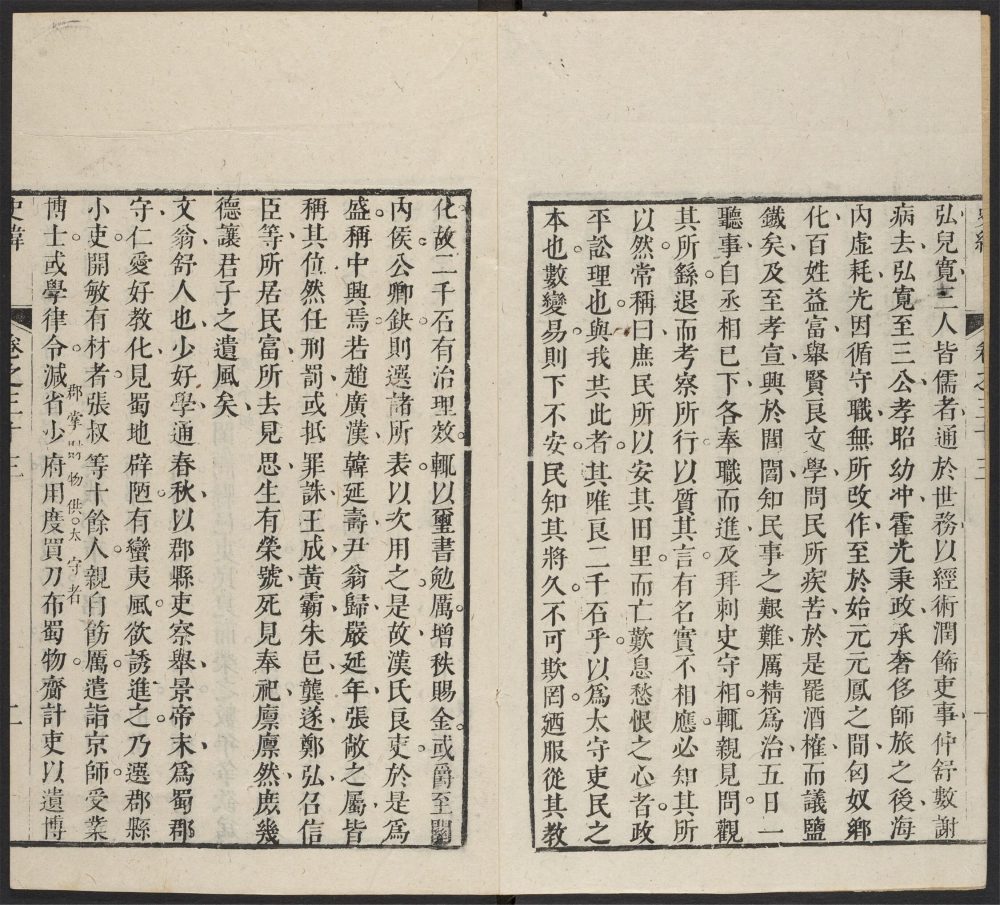 弘兒寬二人皆儒者通於世務以經術潤餙吏事仲舒數謝
病去弘寬至三公孝昭幼冲霍光秉政承奢侈師旅之後海
內虛耗光因循守職無所改作至於始元元鳳之間匈奴鄕
化百姓益富舉賢良文學問民所疾苦於是罷酒榷而議鹽
鐵矣及至孝宣興於閭閻知民事之艱難厲精爲治五日一
聽事自丞相已下各奉職而進及拜刺史守相輒親見問觀
其所繇退而考察所行以質其言有名實不相應必知其所
以然常稱曰庶民所以安其田里而亡歎息愁恨之心者政
平訟理也與我共此者其唯良二千石乎以爲太守吏民之
本也數變易則下不安民知其將久不可欺罔廼服從其教
化故二千石有治理效輒以璽書勉厲增秩賜金或爵至關
內侯公卿缺則選諸所表以次用之是故漢氏良吏於是爲
盛稱中興焉若趙廣漢韓延壽尹翁歸嚴延年張敞之屬皆
稱其位然任刑罰或抵罪誅王成黃霸朱邑龔遂鄭弘召信
臣等所居民富所去見思生有榮號死見奉祀廩廩然庶幾
德讓君子之遺風矣
文翁舒人也少好學通春秋以郡縣吏察舉景帝末爲蜀郡
守仁愛好教化見蜀地辟陋有蠻夷風欲誘進之乃選郡縣
小吏開敏有材者張叔等十餘人親自飭厲遣詣京師受業
博士或學律令減省少府用度買刀布蜀物齎計吏以遺博
郡掌財物供太守者
史緯
卷之三十三
二